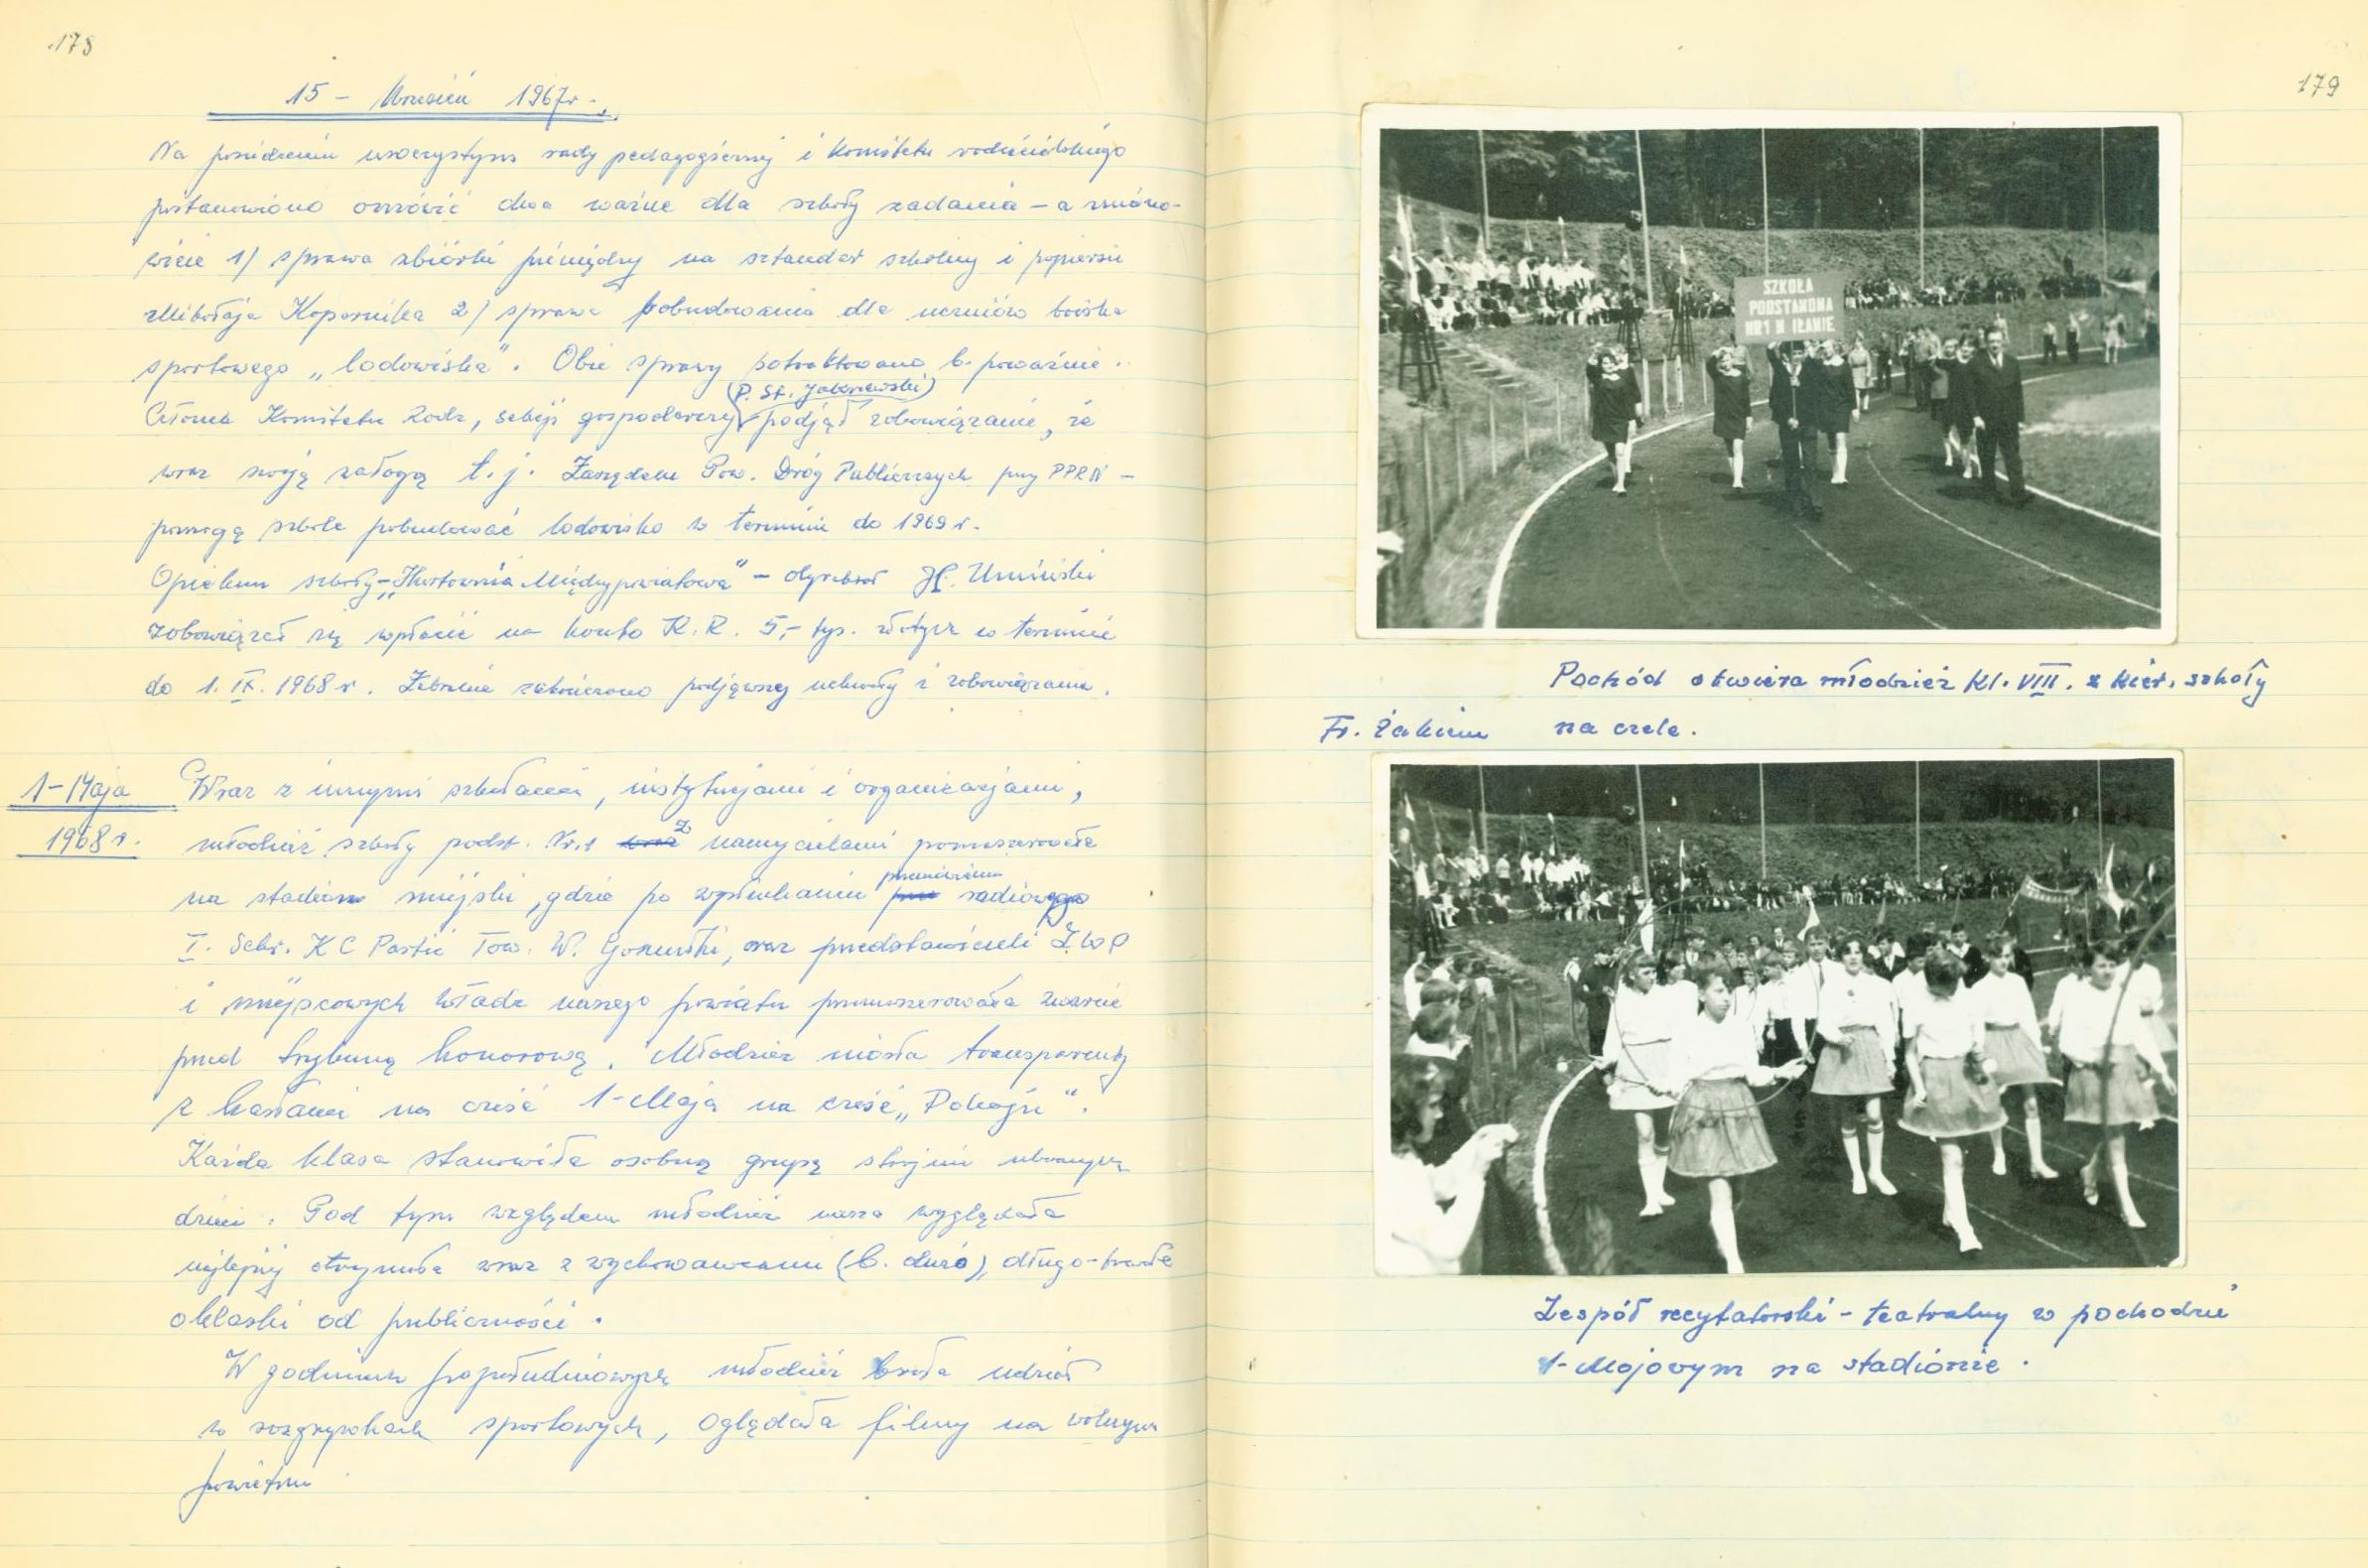 178
15 – Wrzesień 1967r.
Na posiedzeniu uroczystym rady pedagogicznej i komitetu rodzicielskiego
postanowiono omówić dwa ważne dla szkoły zadania – a miano-
wicie 1) sprawa zbiórki pieniędzy na sztandar szkolny i popiersie
Mikołaja Kopernika 2) sprawa pobudowania dla uczniów boiska
sportowego „lodowiska". Obie sprawy potraktowano b. poważnie.
(P. St.
Członek Komitetu Rodz, sekcji gospodarczej podjął zobowiązanie, że
wraz swoją załogą t.j. Zarządem Pow. Dróg Publicznych przy PPRN –
pomogą szkole pobudować lodowisko w terminie do 1969 r.
Opiekun szkoły – „Hurtownia Międzypowiatowa" – dyrektor H. Umiński
zobowiązał się wpłacić na konto K.R. 5,- tys. złotych w terminie
do 1. IX. 1968 r. Zebranie zakończono podjęciem uchwały i zobowiązania.
1-Maja
1968 r.
Wraz z innymi szkołami, instytucjami i organizacjami,
młodzież szkoły podst. Nr. 1 z nauczycielami pomaszerowała
na stadion miejski, gdzie po wysłuchaniu przemówienia radiowego
I. Sekr. KC Partii Tow. W. Gomułki, oraz przedstawicieli L.W.P
i miejscowych władz naszego powiatu przemaszerowała zwarcie
przed trybuną honorową. Młodzież niosła transparenty
z hasłami na cześć 1-Maja na cześć „Pokoju".
Każda klasa stanowiła osobną grupę strojnie ubranych
dzieci. Pod tym względem młodzież nasza wyglądała
najlepiej otrzymała wraz z wychowawcami (b. dużo), długo-trwałe
oklaski od publiczności.
W godzinach popołudniowych młodzież brała udział
w rozgrywkach sportowych, oglądała filmy na wolnym
powietrzu
179
SZKOŁA
PODSTAWOWA
NR 1 W IŁAWIE
Pochód otwiera młodzież kl. VIII. z kier. szkoły
Fr. Żakiem na czele.
Zespół recytatorski – teatralny w pochodzie
1-Majowym na stadionie.